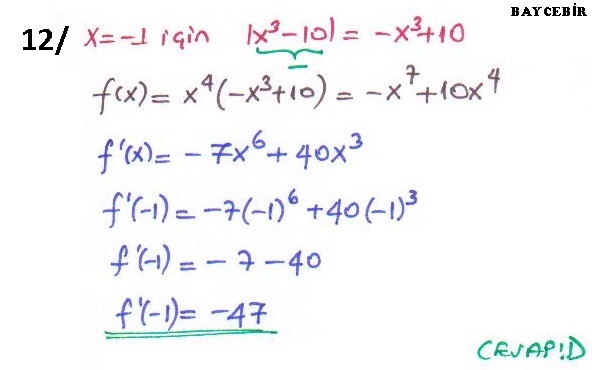 BAYCEBİR
12/ x=-1 için |x³-10| = -x³+10
-
f(x) = x⁴(-x³+10) = -x⁷+10x⁴
f'(x) = -7x⁶+40x³
f'(-1) = -7(-1)⁶+40(-1)³
f'(-1) = -7-40
f'(-1) = -47
CEVAP:D